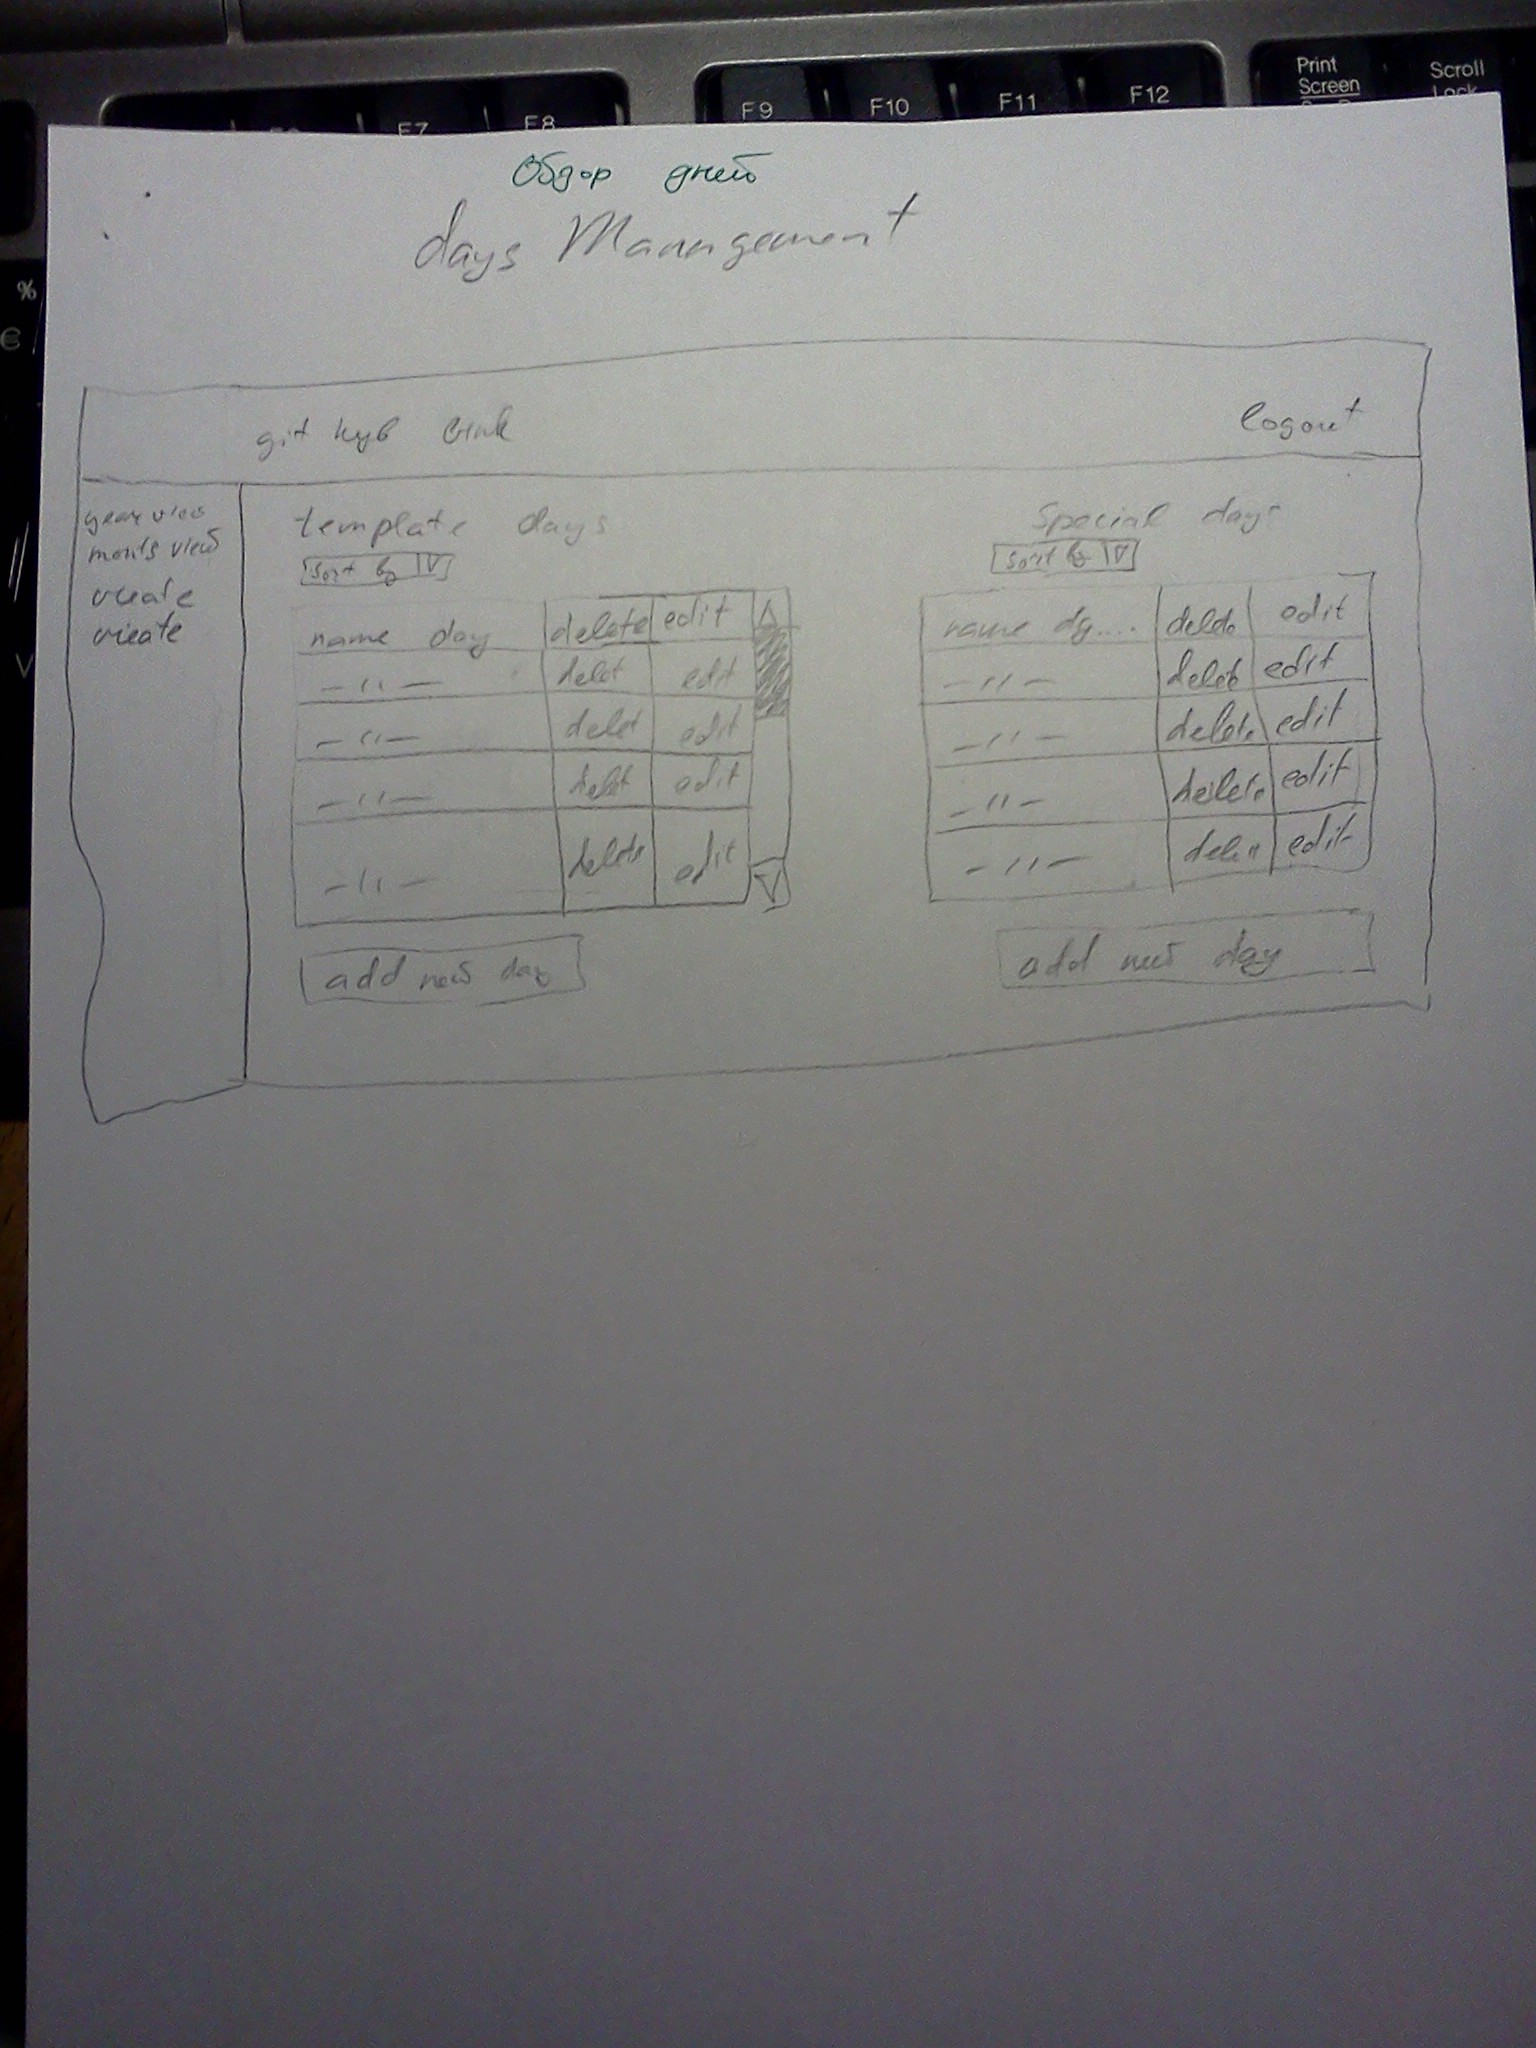 F7 F8 F9 F10 F11 F12 Print Screen Scroll Lock
%
€
V
Обзор дней
days Management
git hyb link logout
year view
monts view
create
create
template days
sort by
name day delete edit
— 〃 — delet edit
— 〃 — delet edit
— 〃 — delet edit
— 〃 — delete edit
add new day
Special days
sort by
name dy.... delete edit
— 〃 — delete edit
— 〃 — delete edit
— 〃 — delete edit
— 〃 — edit
add new day